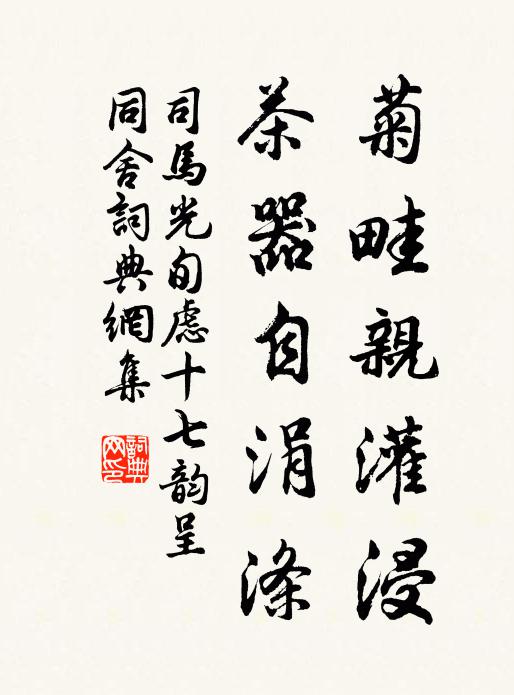 菊畦親灌浸
茶器自涓滌
司馬光旬慮十七韵呈
同舍詞典網集
詞典網印